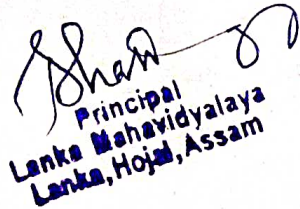 Principal
Lanka Mahavidyalaya
Lanka, Hojai, Assam